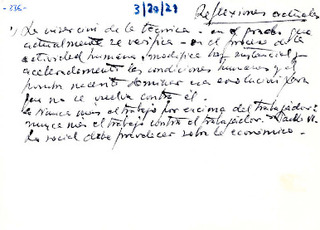 -336-
3/20/28
Reflexiones actuales
1) La inserción de la técnica - en el grado que
actualmente se verifica - en el proceso de la
actividad humana, modifica
aceleradamente las condiciones humanas y el
hombre necesita dominar esa evolución para
que no se vuelva contra él.
Nunca más el trabajo por encima del trabajador:
nunca más el trabajo contra el trabajador.
Lo social debe prevalecer sobre lo económico.